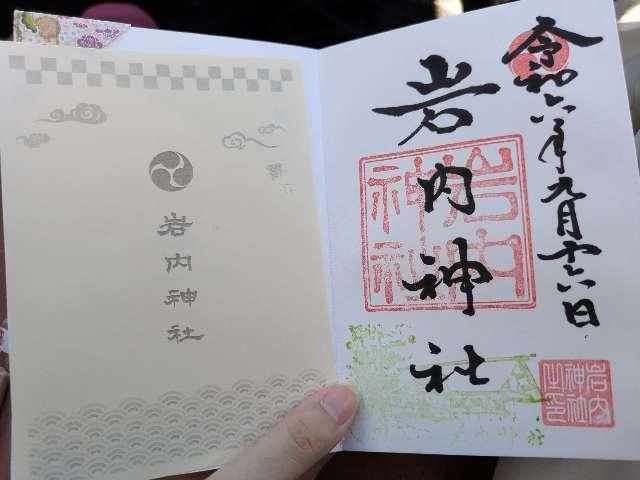 令和六年九月廿六日
岩内神社
岩内神社
岩内神社之印
岩内神社